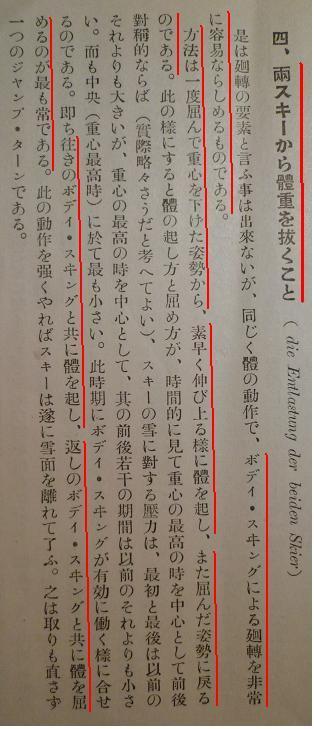 四、兩スキーから體重を拔くこと (die Entlastung der beiden Skier)
是は廻轉の要素と言ふ事は出來ないが、同じく體の動作で、ボデイ・スヰングによる廻轉を非常
に容易ならしめるものである。
方法は一度屈んで重心を下げた姿勢から、素早く伸び上る樣に體を起し、また屈んだ姿勢に戾る
のである。此の樣にすると體の起し方と屈め方が、時間的に見て重心の最高の時を中心として前後
對稱的ならば(實際略々さうだと考へてよい)、スキーの雪に對する壓力は、最初と最後は以前の
それよりも大きいが、重心の最高の時を中心として、其の前後若干の期間は以前のそれよりも小さ
い。而も中央(重心最高時)に於て最も小さい。此時期にボデイ・スヰングが有効に働く樣に合せ
るのである。卽ち往きのボデイ・スヰングと共に體を起し、返しのボデイ・スヰングと共に體を屈
めるのが最も常である。此の動作を强くやればスキーは遂に雪面を離れて了ふ。之は取りも直さず
一つのジャンプ・ターンである。